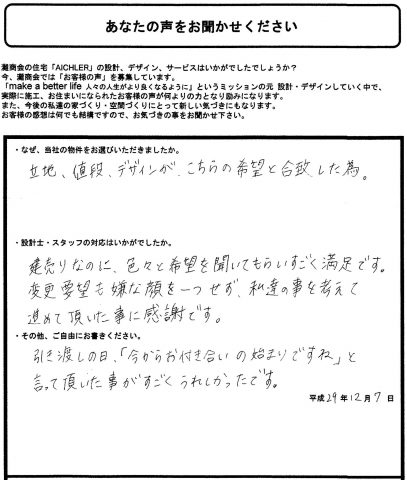 あなたの声をお聞かせください
灘商会の住宅「AICHLER」の設計、デザイン、サービスはいかがでしたでしょうか？
今、灘商会では「お客様の声」を募集しています。
「make a better life 人々の人生がより良くなるように」というミッションの元 設計・デザインしていく中で、
実際に施工、お住まいになられたお客様の声が何よりの力となり励みになります。
また、今後の私達の家づくり・空間づくりにとって新しい気づきにもなります。
お客様の感想は何でも結構ですので、お気づきの事をお聞かせ下さい。
・なぜ、当社の物件をお選びいただきましたか。
立地、値段、デザインが、こちらの希望と合致した為。
・設計士・スタッフの対応はいかがでしたか。
建売りなのに、色々と希望を聞いてもらいすごく満足です。
変更要望も嫌な顔を一つせず、私達の事を考えて
進めて頂いた事に感謝です。
・その他、ご自由にお書きください。
引き渡しの日、「今からお付き合いの始まりですね」と
言って頂いた事がすごくうれしかったです。
平成29年12月7日